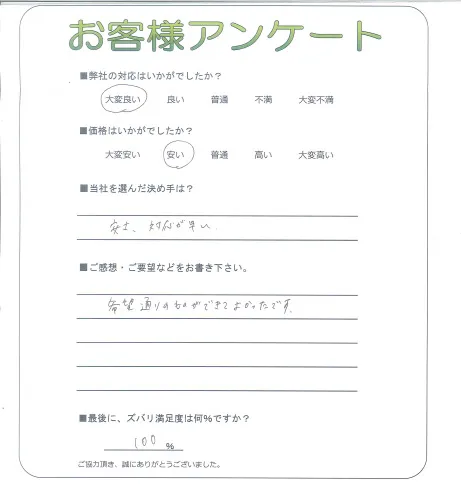 お客様アンケート
■弊社の対応はいかがでしたか？
大変良い 良い 普通 不満 大変不満
■価格はいかがでしたか？
大変安い 安い 普通 高い 大変高い
■当社を選んだ決め手は？
安さ、対応が早い
■ご感想・ご要望などをお書き下さい。
希望通りのものができてよかったです。
■最後に、ズバリ満足度は何％ですか？
100 ％
ご協力頂き、誠にありがとうございました。